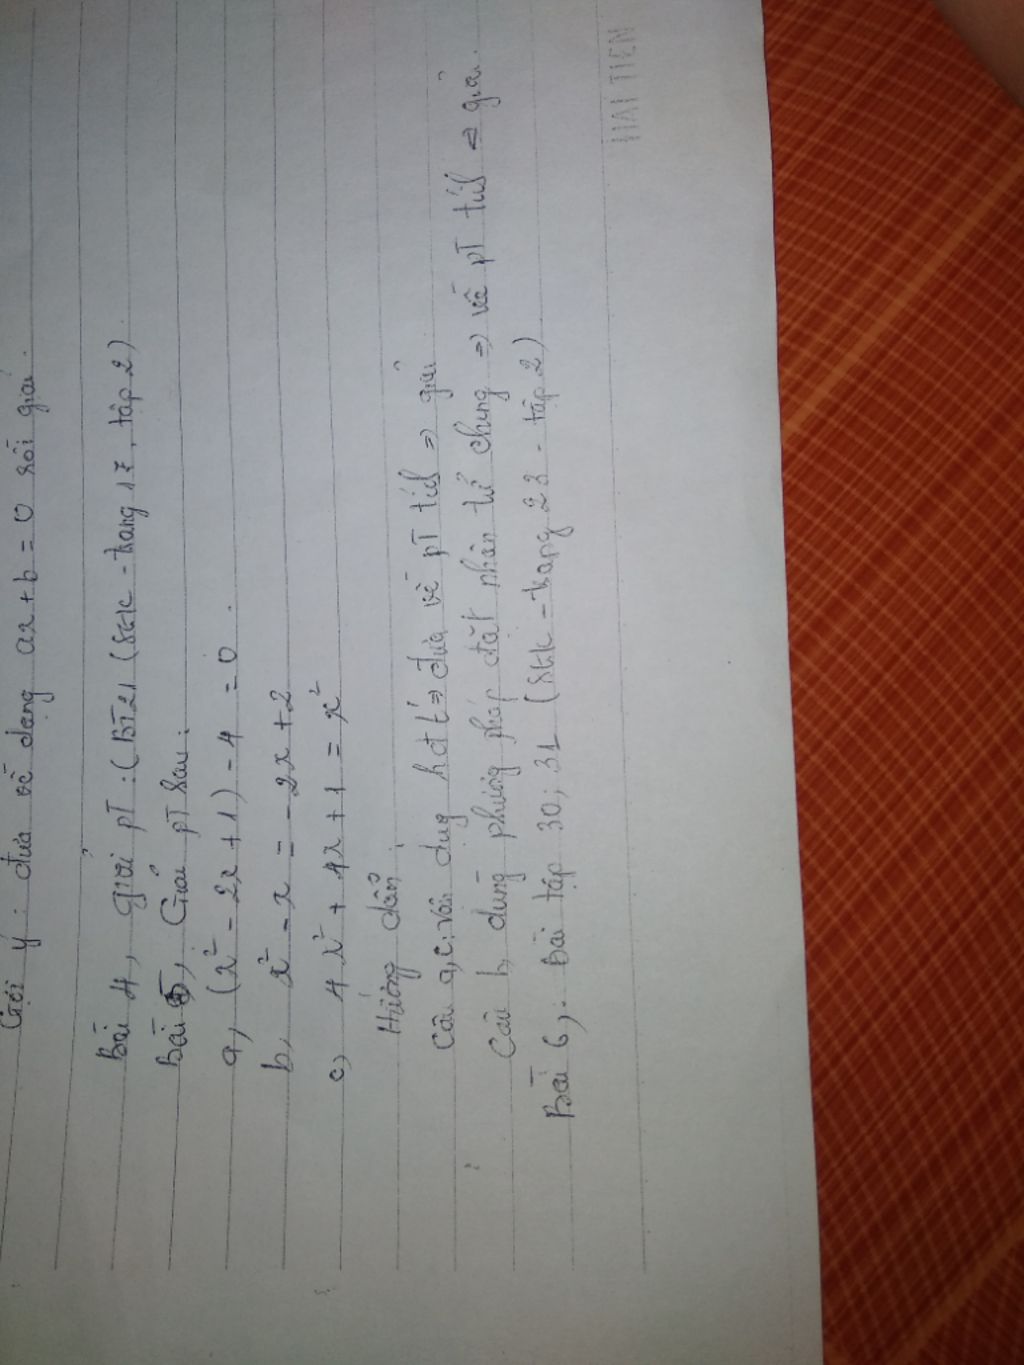 Gợi ý: đưa về dạng ax+b=0 rồi giải.
Bài 4, giải pT: (BT21 (SGK - trang 17. tập 2).
Bài 5, Giải pT sau:
a, (x² - 2x + 1) - 4 = 0.
b, x² - x = - 2x + 2
c, 4x² + 4x + 1 = x²
Hướng dẫn:
Câu a, c: Vận dụng hđt ⇒ đưa về pT tích ⇒ giải
Câu b, dùng phương pháp đặt nhân tử chung ⇒ về pT tích ⇒ giải.
Bài 6,: Bài tập 30; 31 (SGK - trang 23 - tập 2)
HAI TIEN